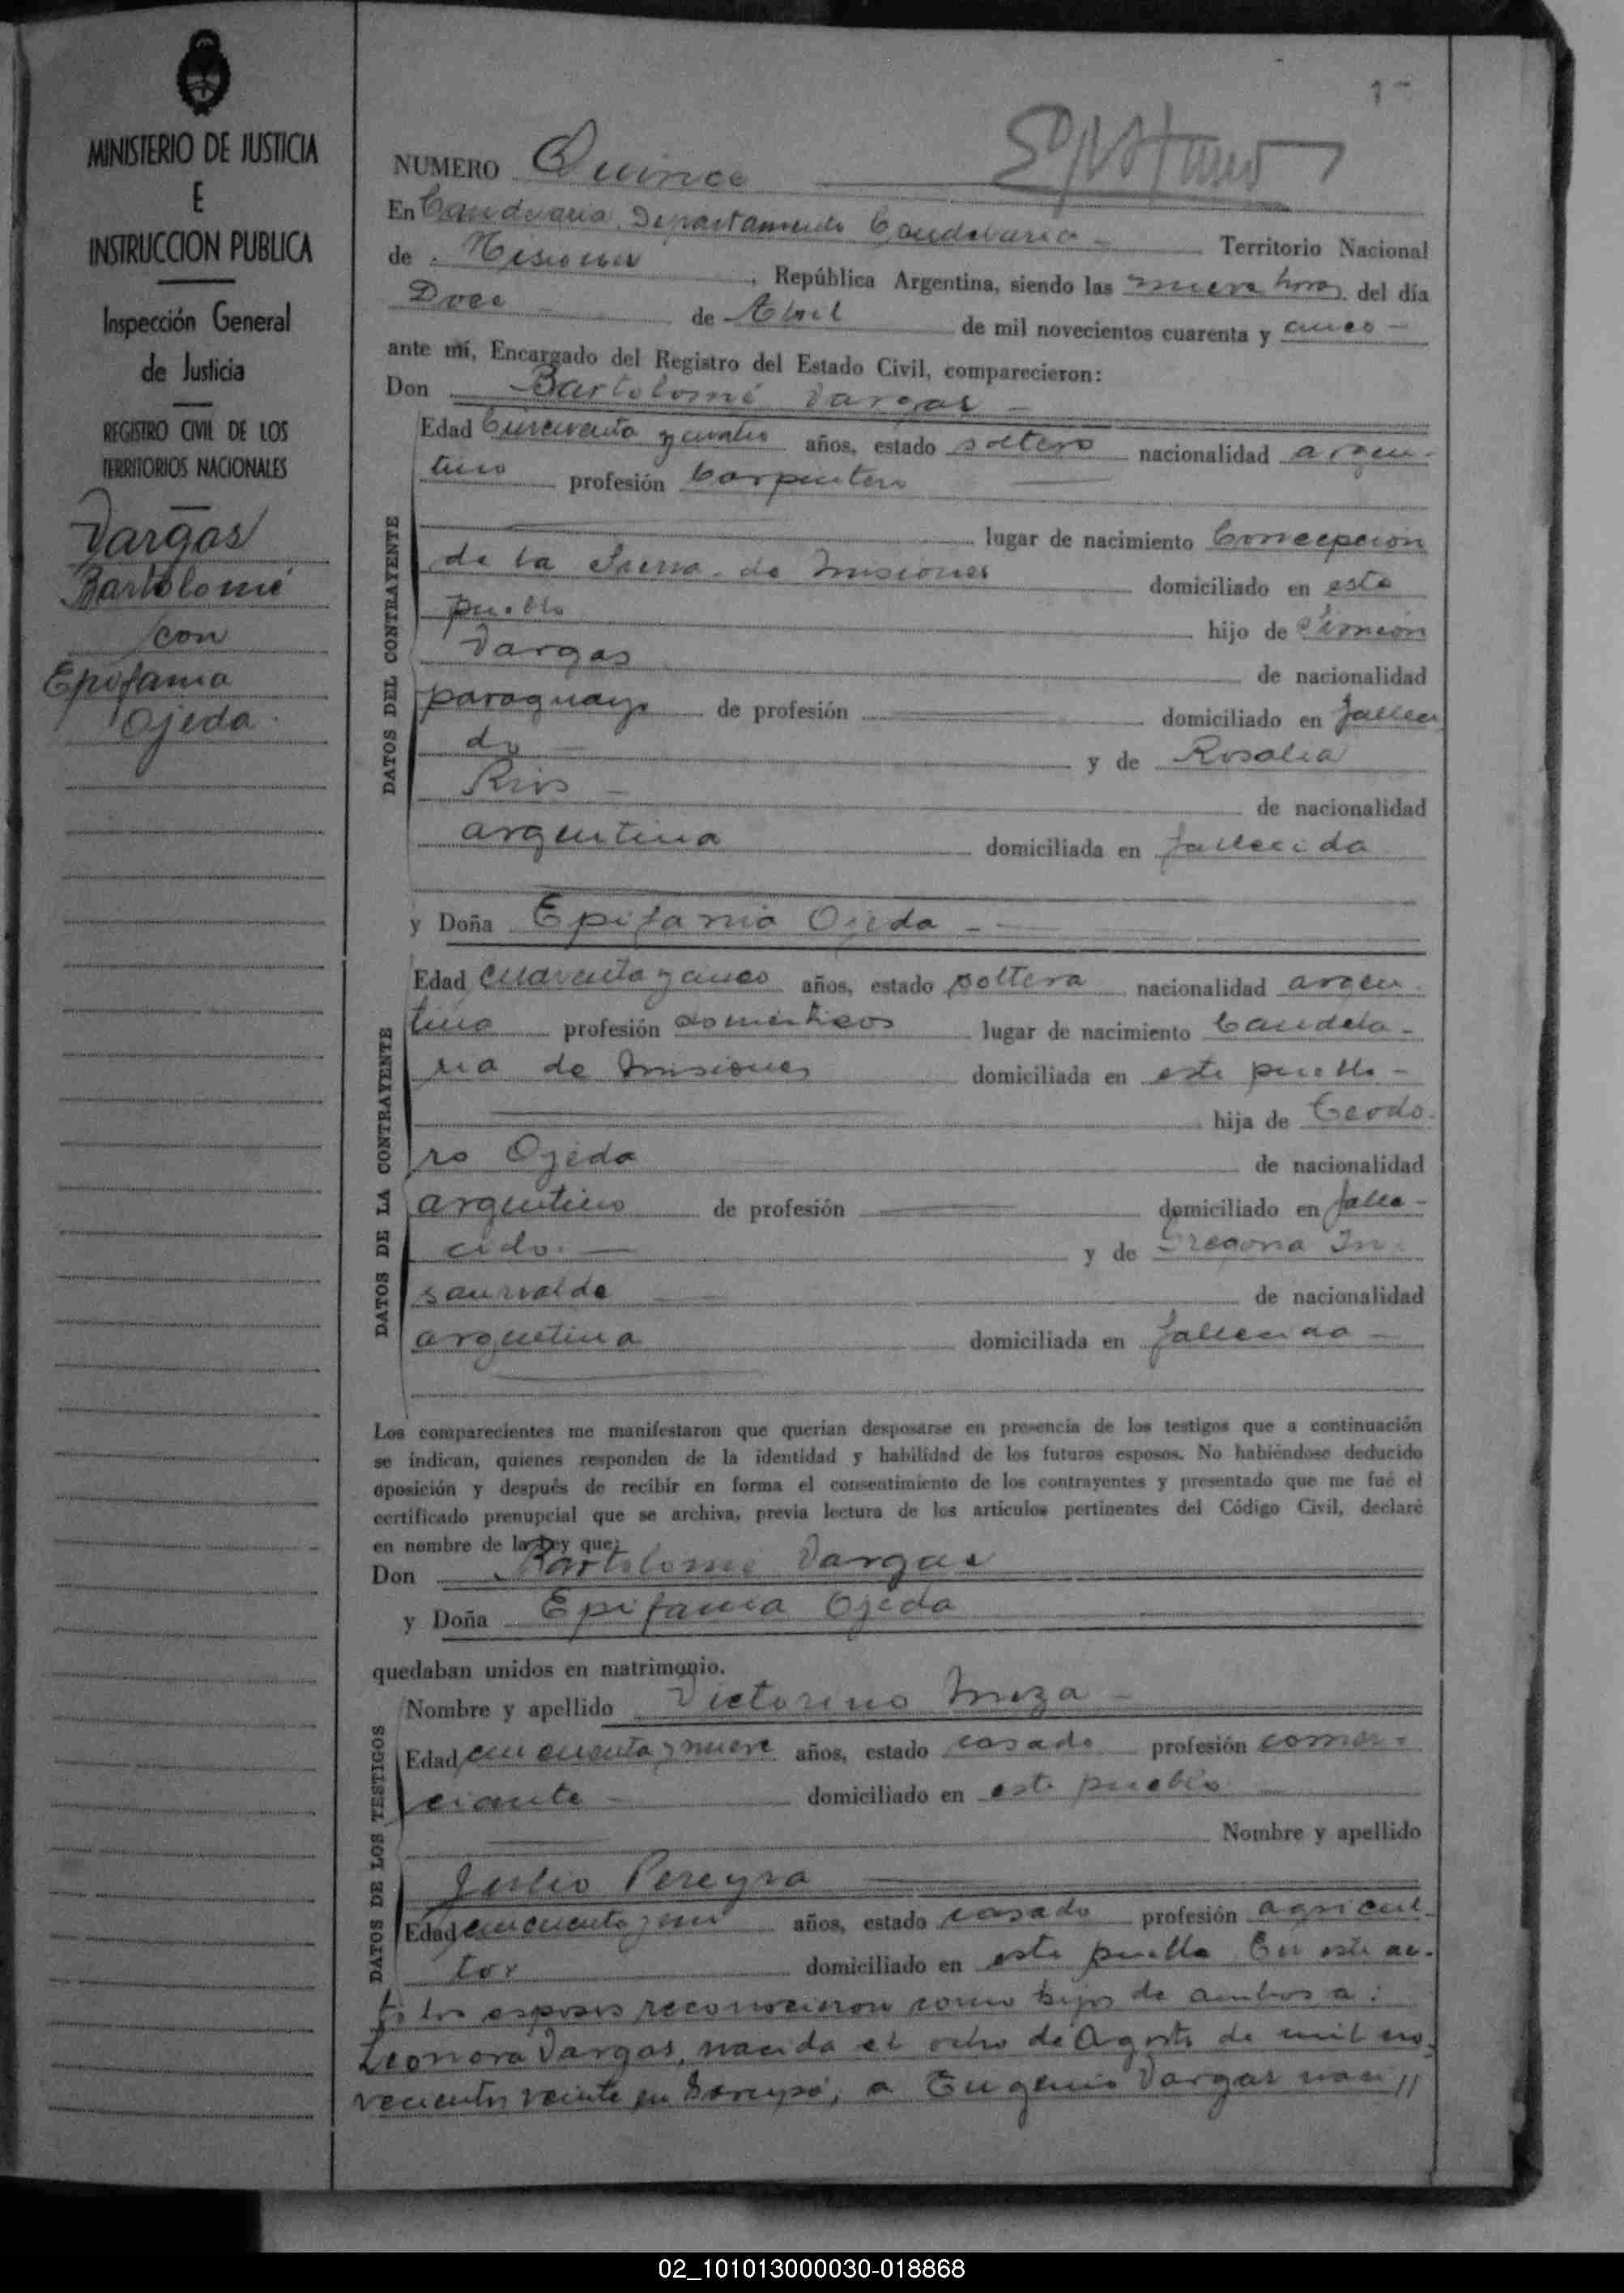 MINISTERIO DE JUSTICIA
E
INSTRUCCION PUBLICA
Inspección General
de Justicia
REGISTRO CIVIL DE LOS
TERRITORIOS NACIONALES
Vargas
Bartolomé
con
Epifania
Ojeda
NUMERO Quince
En Candelaria Departamento Candelaria Territorio Nacional
de Misiones, República Argentina, siendo las nueve horas del día
Doce de Abril de mil novecientos cuarenta y cinco
ante mí, Encargado del Registro del Estado Civil, comparecieron:
Don Bartolomé Vargas
DATOS DEL CONTRAYENTE
Edad Cincuenta y cuatro años, estado soltero nacionalidad argen-
tino profesión Carpintero
lugar de nacimiento Concepcion
de la Sierra de Misiones domiciliado en este
pueblo hijo de Simeon
Vargas de nacionalidad
paraguayo de profesión domiciliado en falleci
do y de Rosalia
Rios de nacionalidad
argentina domiciliada en fallecida
y Doña Epifania Ojeda
DATOS DE LA CONTRAYENTE
Edad cuarenta y cinco años, estado soltera nacionalidad argen
tina profesión domesticos lugar de nacimiento Candela-
ria de Misiones domiciliada en este pueblo
hija de Teodo
ro Ojeda de nacionalidad
argentino de profesión domiciliado en falle-
cido. y de Gregoria In
saurralde de nacionalidad
argentina domiciliada en fallecida
Los comparecientes me manifestaron que querían desposarse en presencia de los testigos que a continuación
se indican, quienes responden de la identidad y habilidad de los futuros esposos. No habiéndose deducido
oposición y después de recibir en forma el consentimiento de los contrayentes y presentado que me fué el
certificado prenupcial que se archiva, previa lectura de los artículos pertinentes del Código Civil, declaré
en nombre de la Ley que:
Don Bartolomé Vargas
y Doña Epifania Ojeda
quedaban unidos en matrimonio.
DATOS DE LOS TESTIGOS
Nombre y apellido Victorino Meza
Edad cincuenta y nueve años, estado casado profesión comer-
ciante domiciliado en este pueblo
Nombre y apellido
Julio Pereyra
Edad cincuenta y un años, estado casado profesión agricul-
tor domiciliado en este pueblo En este ac-
to los esposos reconocieron como hijos de ambos a:
Leonora Vargas, nacida el ocho de Agosto de mil no-
vecientos veinte en a Eugenio Vargas naci //
02_101013000030-018868